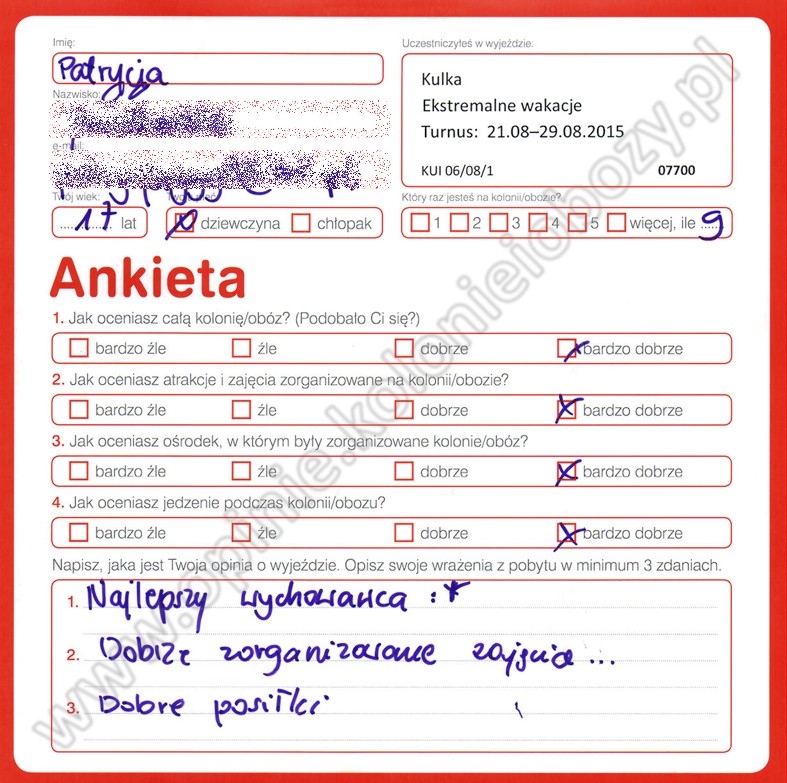 Imię:
Patrycja
Uczestniczyłeś w wyjeździe:
Kulka
Ekstremalne wakacje
Turnus: 21.08–29.08.2015
KUI 06/08/1 07700
Nazwisko:
e-mail:
Twój wiek:
17 lat
dziewczyna chłopak
Który raz jesteś na kolonii/obozie?
1 2 3 4 5 więcej, ile 9
Ankieta
1. Jak oceniasz całą kolonię/obóz? (Podobało Ci się?)
bardzo źle źle dobrze bardzo dobrze
2. Jak oceniasz atrakcje i zajęcia zorganizowane na kolonii/obozie?
bardzo źle źle dobrze bardzo dobrze
3. Jak oceniasz ośrodek, w którym były zorganizowane kolonie/obóz?
bardzo źle źle dobrze bardzo dobrze
4. Jak oceniasz jedzenie podczas kolonii/obozu?
bardzo źle źle dobrze bardzo dobrze
Napisz, jaka jest Twoja opinia o wyjeździe. Opisz swoje wrażenia z pobytu w minimum 3 zdaniach.
1. Najlepszy wychowawca :*
2. Dobrze zorganizowane zajęcia ...
3. Dobre posiłki
www.opinie.kolonieiobozy.pl